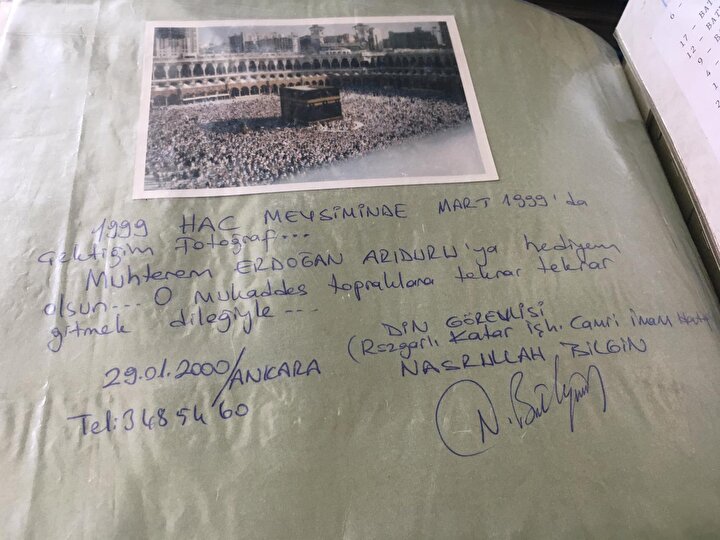 1999 HAC MEVSİMİNDE MART 1999'da
çektiğim Fotoğraf...
Muhterem ERDOĞAN ARIDURU'ya hediyem
olsun... O mukaddes topraklara tekrar tekrar
gitmek dileğiyle...
DİN GÖREVLİSİ
(Rüzgarlı Katar İşh. Camii İmam Hatip
NASRULLAH BİLGİN
29.01.2000/ANKARA
Tel: 348 54 60
N. Bilgin
6 -
17 - BAT
12 - BAT
9 -
4 -